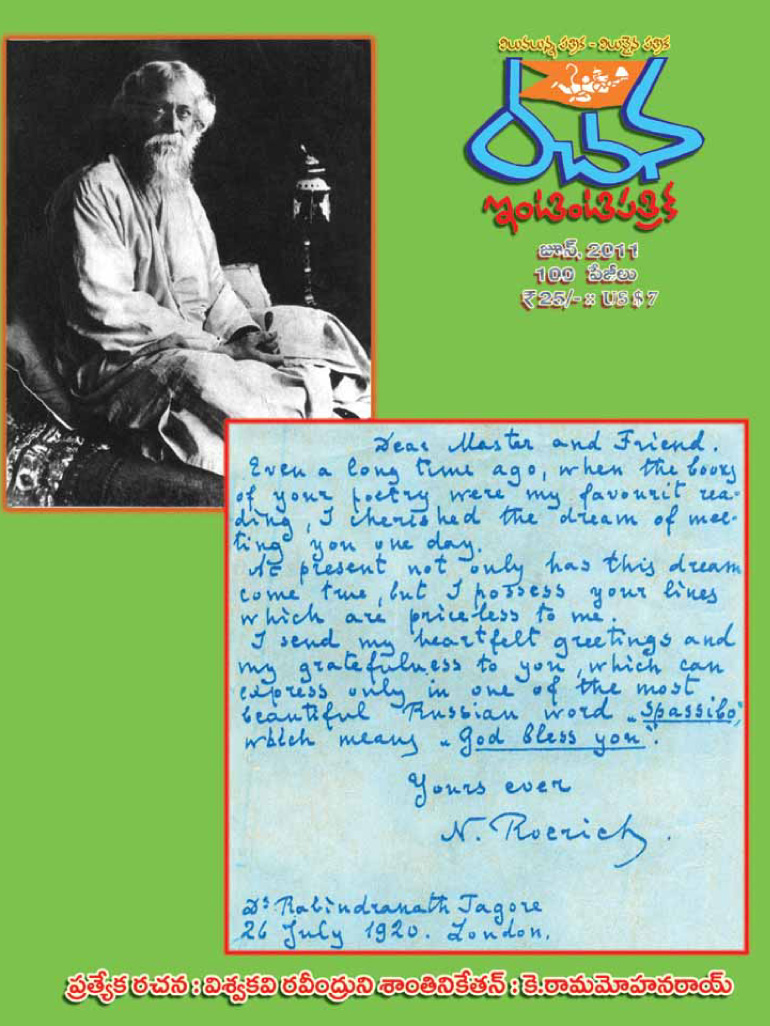 విలువలున్న పత్రిక - విలువైన పత్రిక
రచన
ఇంటింటిపత్రిక
జూన్, 2011
100 పేజీలు
₹25/- :: US $ 7
Dear Master and Friend.
Even a long time ago, when the books
of your poetry were my favourit rea-
ding, I cherished the dream of mee-
ting you one day.
At present not only has this dream
come true, but I possess your lines
which are priceless to me.
I send my heartfelt greetings and
my gratefulness to you, which can
express only in one of the most
beautiful Russian word „spassibo",
which means „God bless you".
Yours ever
N. Roerich.
Dr Rabindranath Tagore
26 July 1920. London.
ప్రత్యేక రచన : విశ్వకవి రవీంద్రుని శాంతినికేతన్ : కె.రామమోహనరాయ్